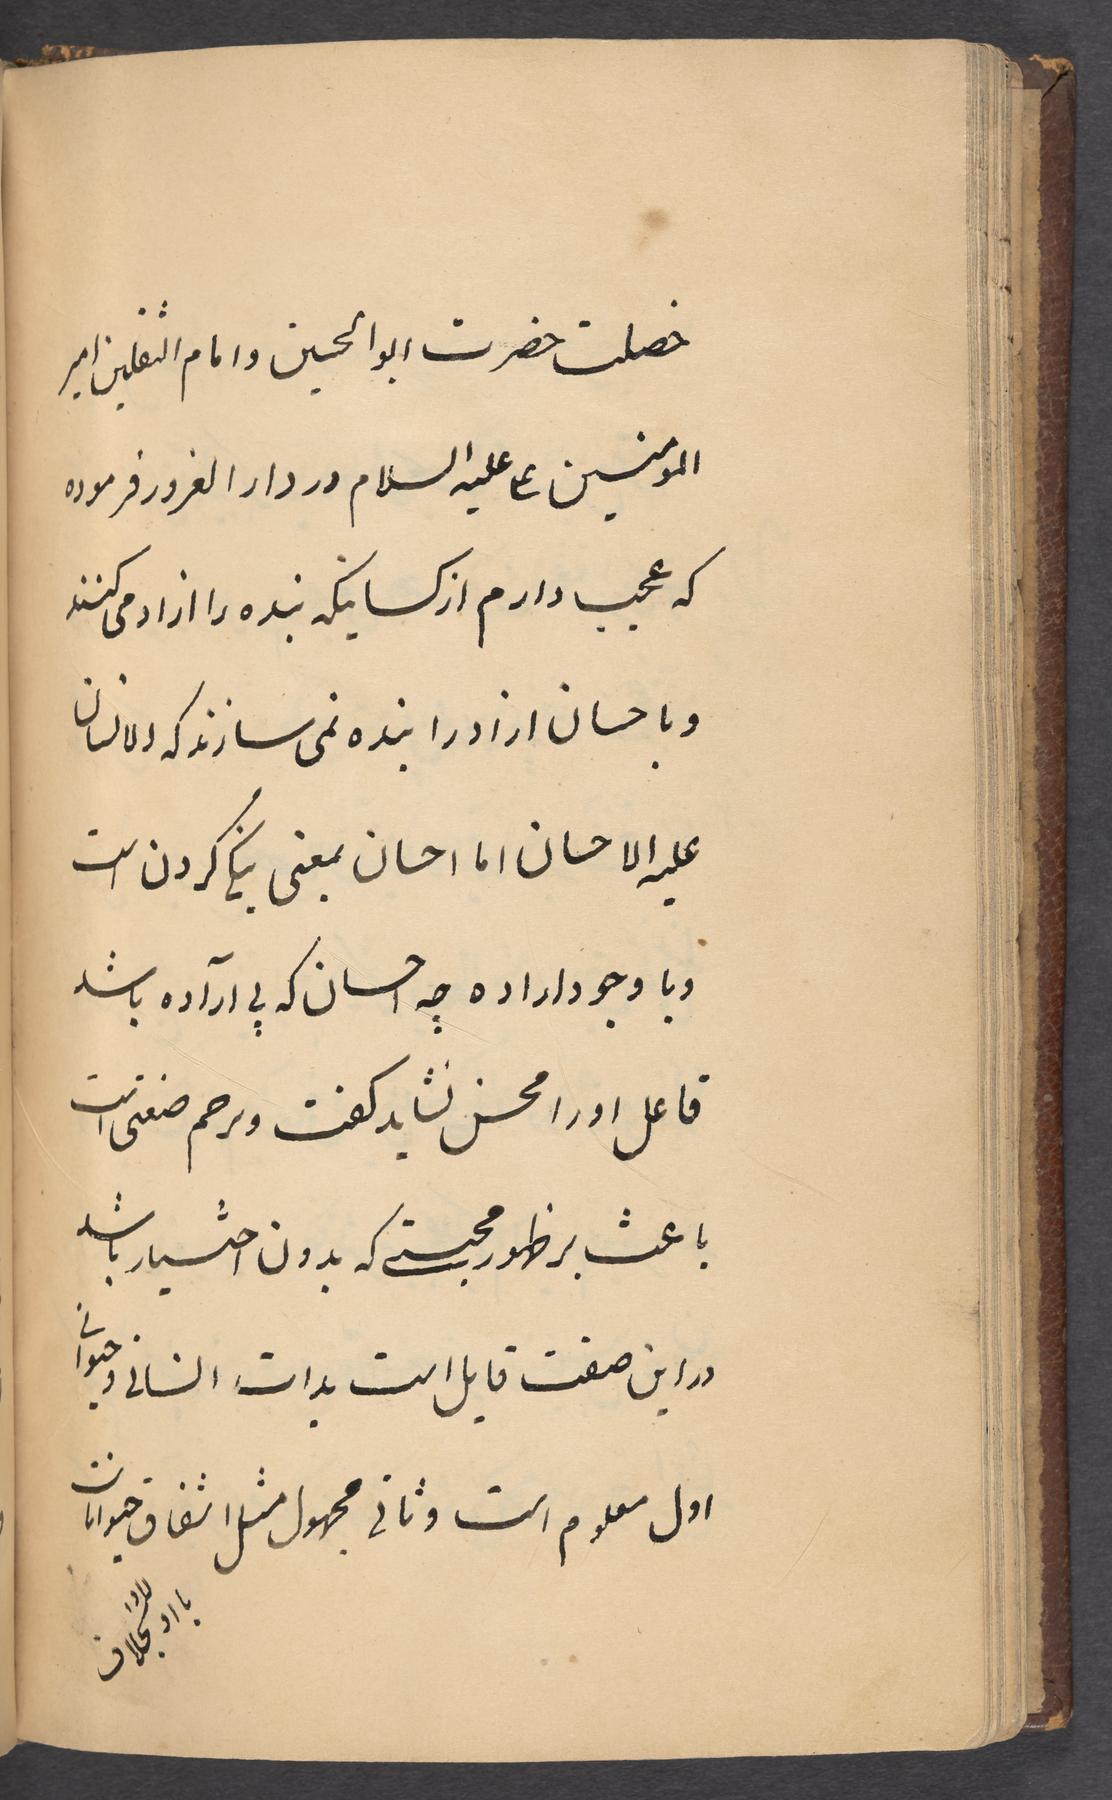 خصلت حضرت ابوالحسین و امام الثقلین امیر
المومنین ع علیه السلام در دار الغرور فرموده
که عجب دارم از کسانیکه بنده را ازاد می کنند
و باحسان ازاد را بنده نمی سازند که الانسان
علیه الاحسان اما احسان بمعنی نیکی کردن است
و با وجود اراده چه احسان که بی آراده باشد
فاعل اورا محسن نشاید گفت و رحم صفتی است
باعث بر ظهور محبتی که بدون اختیار باشد
در این صفت قابل است بذات انسانی و حیوانی
اول معلوم است و ثانی مجهول مثل اشفاق حیوانات
با اولاد بخلاف